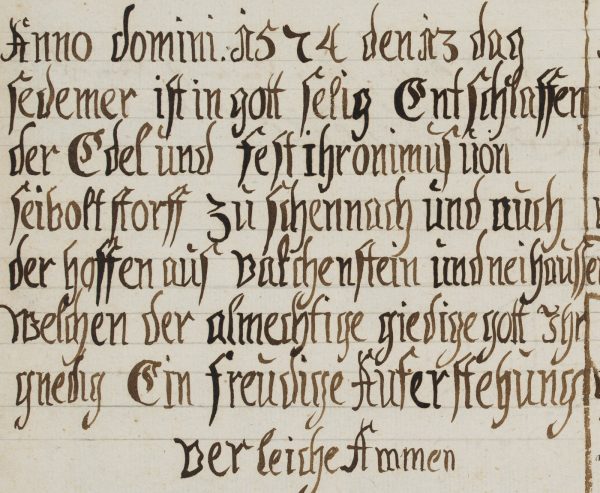 Anno domini. 1574 den 13 dag
sedemer ist in gott selig Entschlaffen
der Edel und fest ihronimus von
seiboltstorff zu schennach und auch
der hoffen aus valchenstein und neihausse
welchen der almechtige giedige gott ihr
gnedig Ein freudige Auferstehung
verleiche Ammen